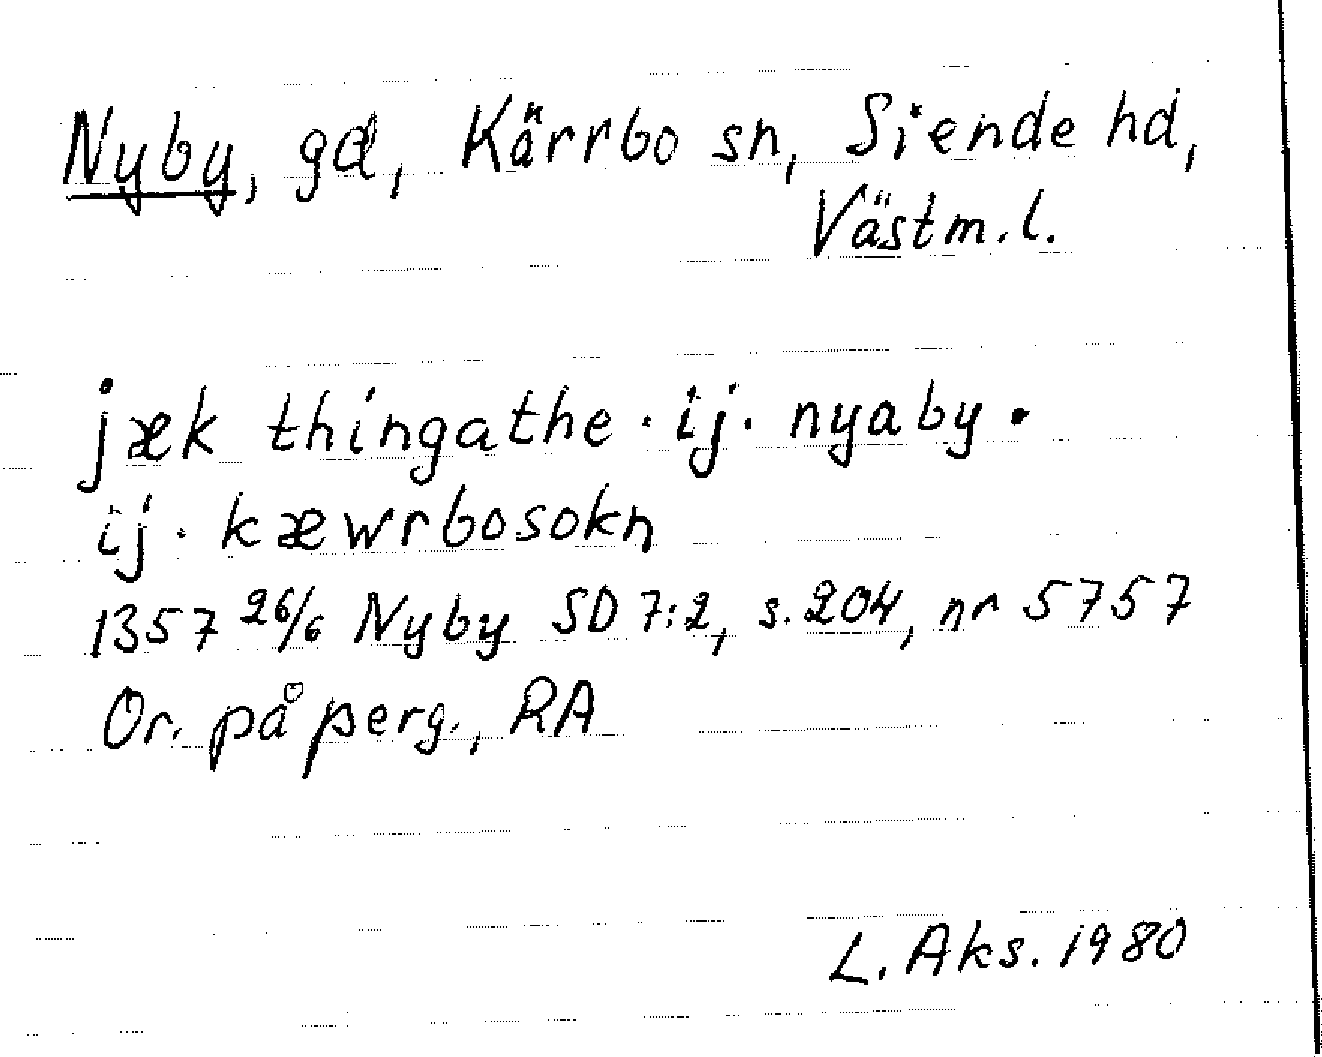 Nyby, gd, Kärrbo sn, Siende hd,
Västm. l.
jæk thingathe · ij · nyaby ·
ij · kæwrbosokn
1357 26/6 Nyby SD 7:2, s. 204, nr 5757
Or. på perg., RA
L. Aks. 1980